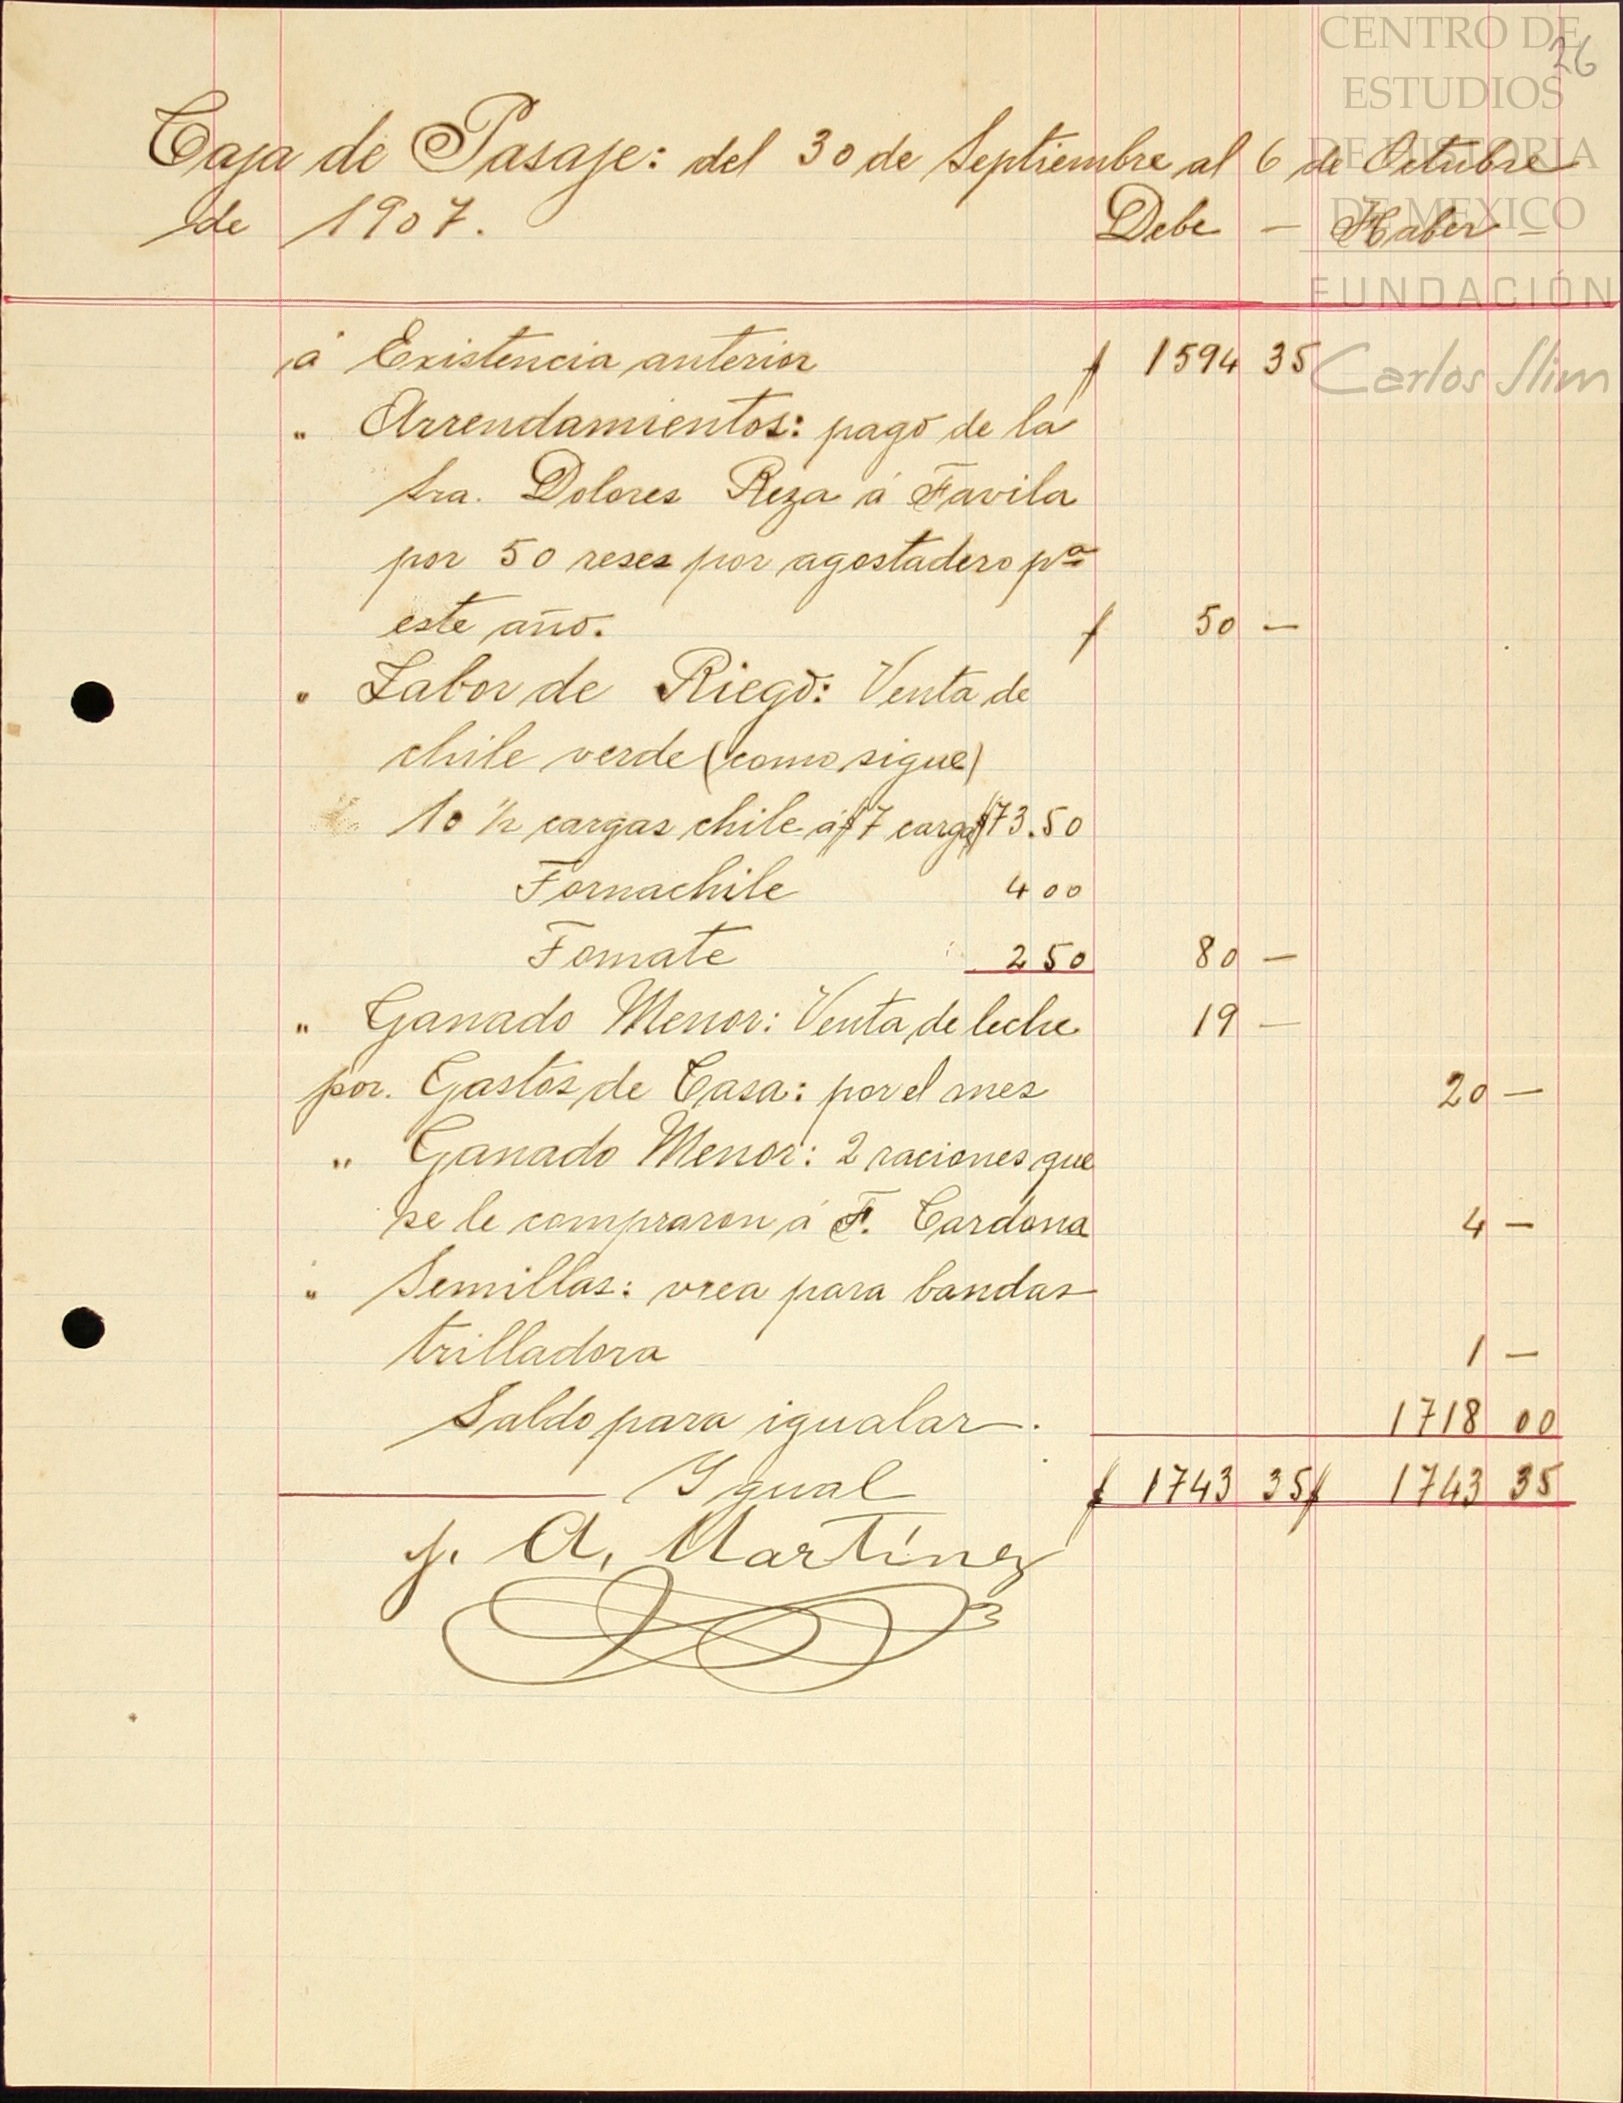 CENTRO DE
ESTUDIOS
DE HISTORIA
DE MEXICO
FUNDACIÓN
Carlos Slim
26
Caja de Pasaje: del 30 de Septiembre al 6 de Octubre
de 1907. Debe - Haber -
á Existencia anterior $ 1594 35
" Arrendamientos: pago de la
Sra. Dolores Reza á Favila
por 50 reses por agostadero pa
este año. $ 50 -
" Labor de Riego: Venta de
chile verde (como sigue)
10 1/2 cargas chile á $7 carga $73.50
Tornachile 4 00
Tomate 2 50 80 -
" Ganado Menor: Venta de leche 19 -
por. Gastos de Casa: por el mes 20 -
" Ganado Menor: 2 raciones que
se le compraron á F. Cardona 4 -
" Semillas: vrea para bandas
trilladora 1 -
Saldo para igualar. 1718 00
Igual $ 1743 35 $ 1743 35
p. A. Martínez